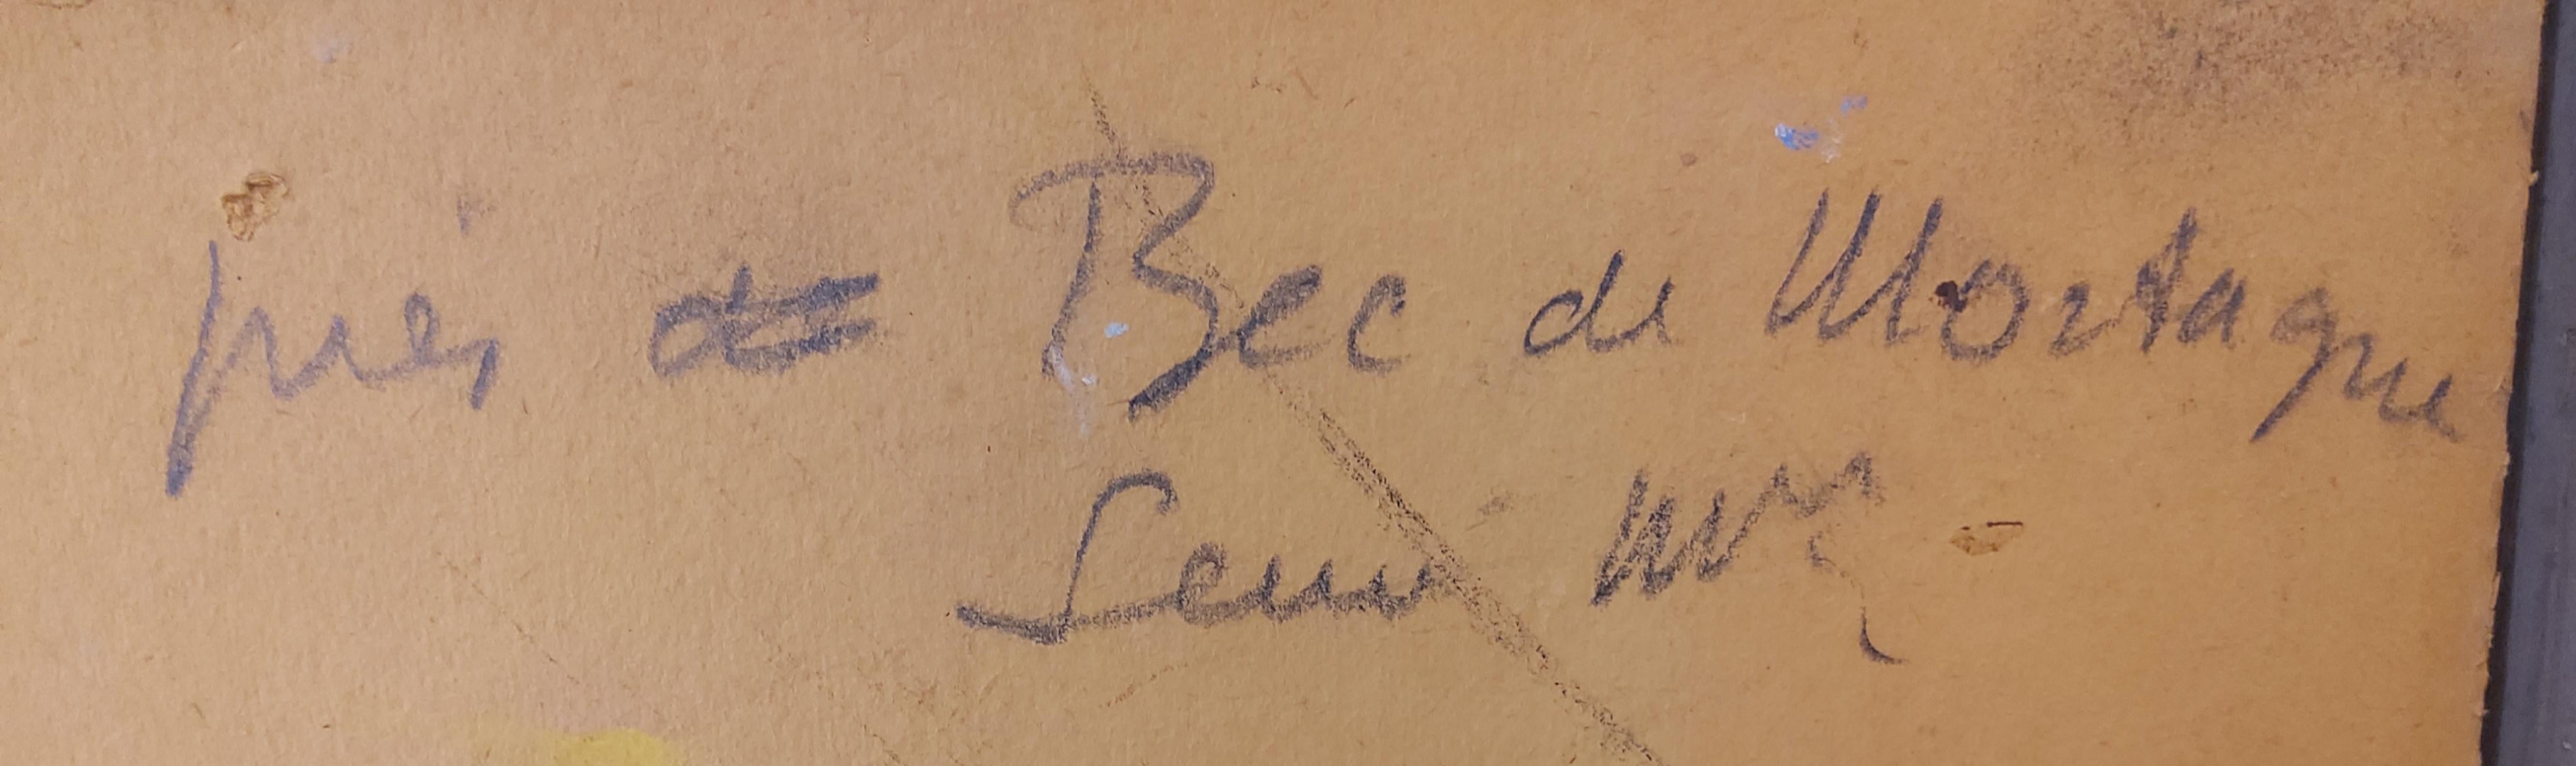 près de Bec de Mortagne
Seine Mme